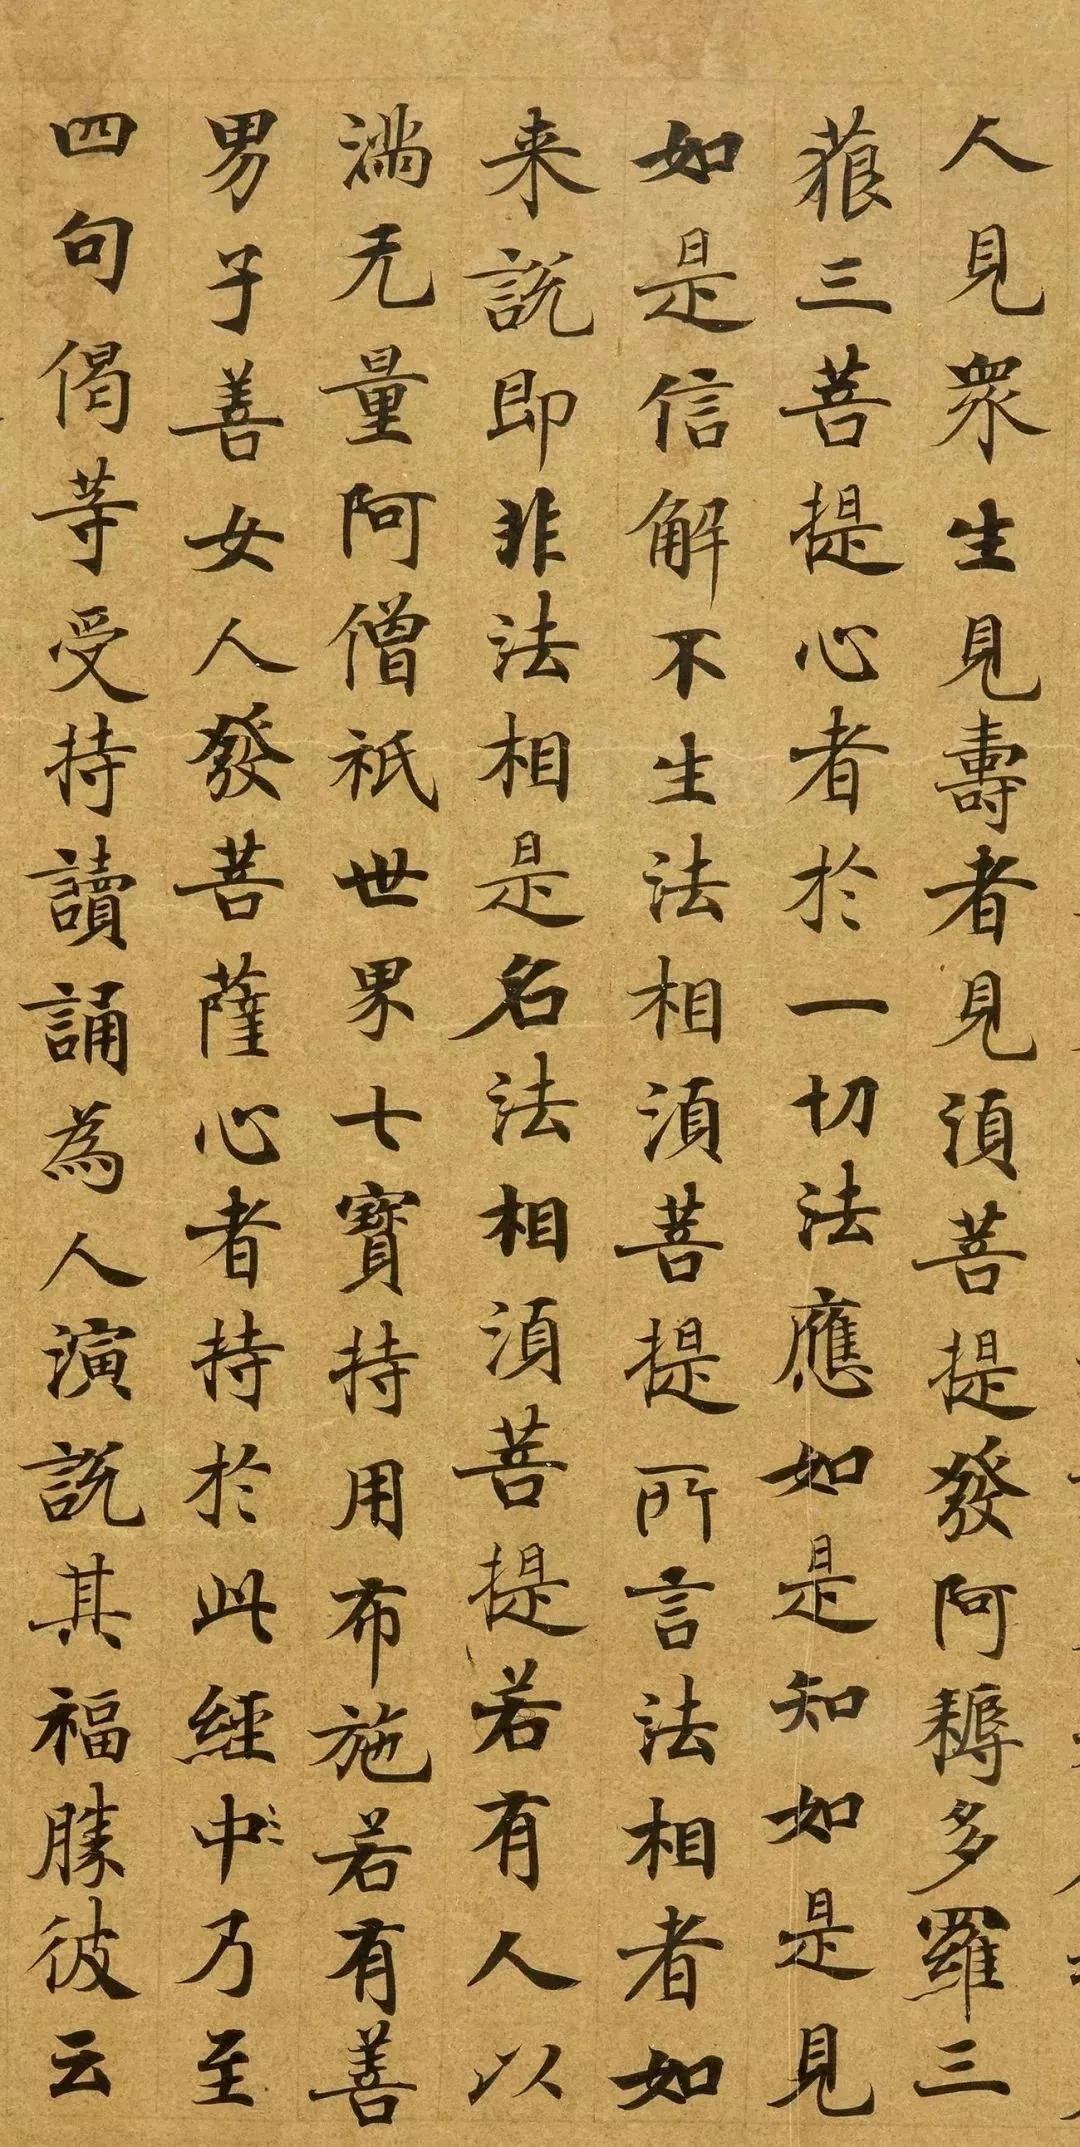 人見眾生見壽者見湏菩提發阿耨多羅三
藐三菩提心者於一切法應如是知如是見
如是信解不生法相湏菩提所言法相者如
来說即非法相是名法相湏菩提若有人以
滿无量阿僧祇世界七寶持用布施若有善
男子善女人發菩薩心者持於此經中乃至
四句偈等受持讀誦為人演說其福勝彼云